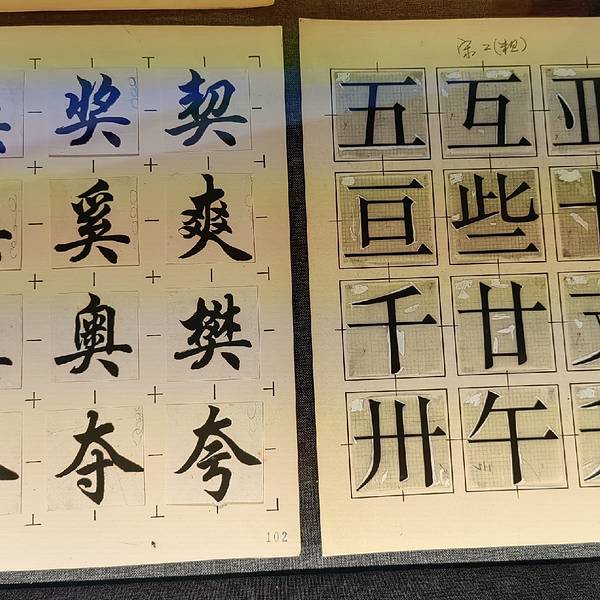 奖 契
奚 爽
奥 樊
夺 夸
102
宋二(粗)
五 互
亘 些
千 廿
卅 午